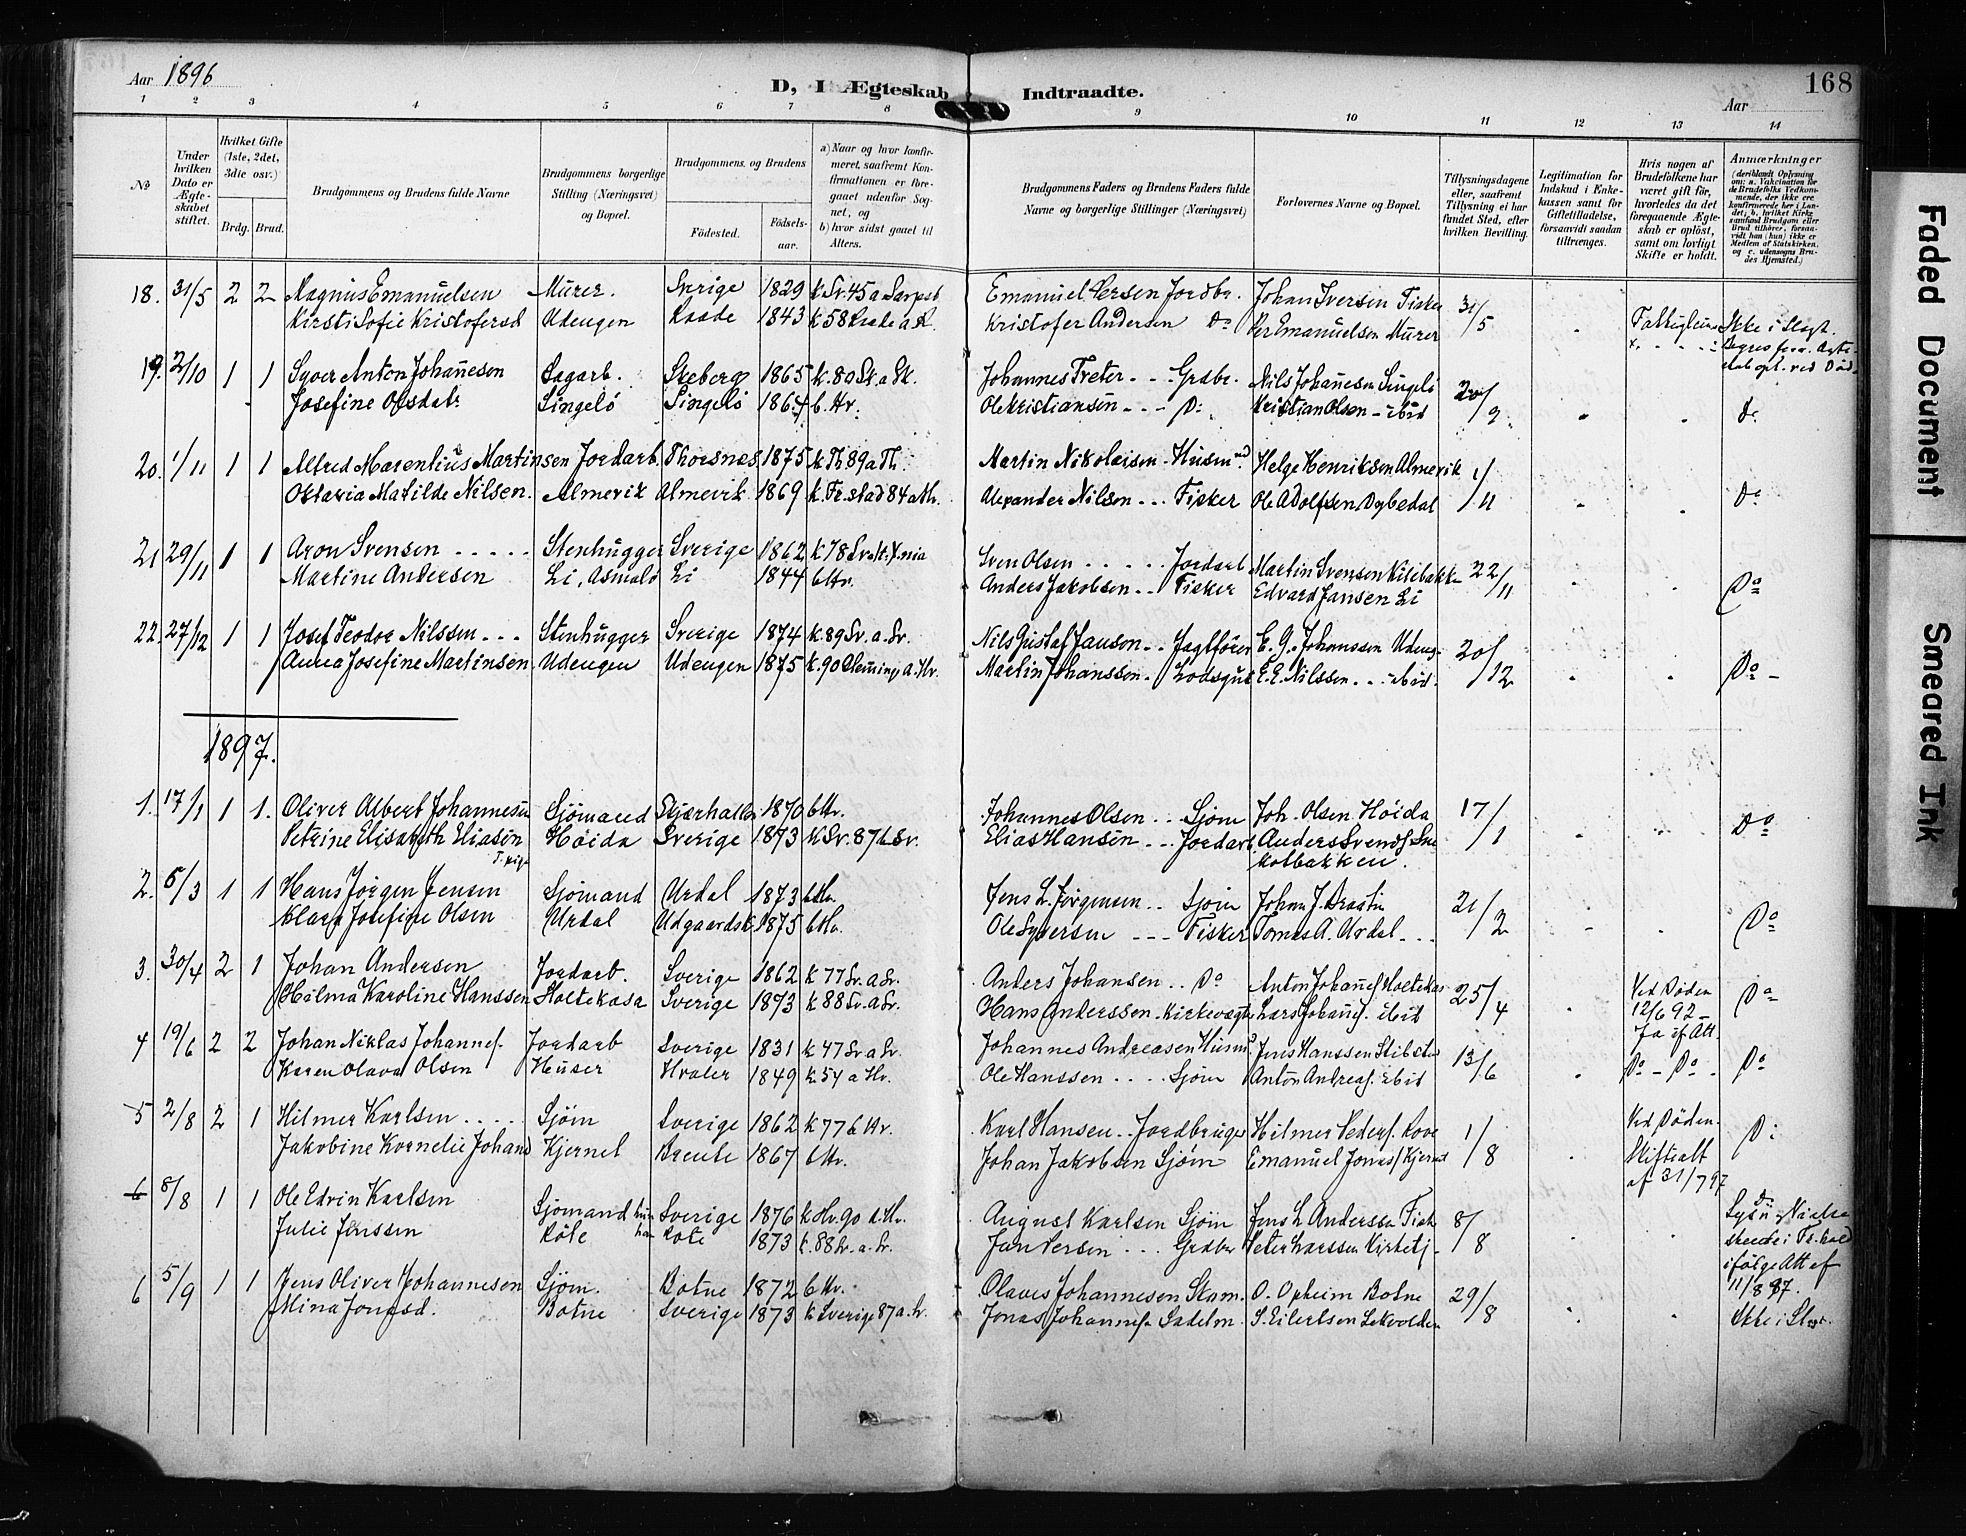 Aar 1896
D, I Ægteskab Indtraadte.
168
Aar
1 2 3 4 5 6 7 8 9 10 11 12 13 14
№
Under hvilken Dato er Ægteskabet stiftet.
Hvilket Gifte (1ste, 2det, 3die osv.)
Brdg. Brud.
Brudgommens og Brudens fulde Navne
Brudgommens borgerlige Stilling (Næringsvei) og Bopæl.
Brudgommens og Brudens
Fødested.
Fødselsaar.
a) Naar og hvor konfirmeret, saafremt Konfirmationen er foregaaet udenfor Sognet, og
b) hvor sidst gaaet til Alters.
Brudgommens Faders og Brudens Faders fulde Navne og borgerlige Stillinger (Næringsvei)
Forlovernes Navne og Bopæl.
Tillysningsdagene eller, saafremt Tillysning ei har fundet Sted, efter hvilken Bevilling.
Legitimation for Indskud i Enkekassen samt for Giftetilladelse, forsaavidt saadan tiltrænges.
Hvis nogen af Brudefolkene har været gift før, hvorledes da det foregaaende Ægteskab er opløst, samt om lovligt Skifte er holdt.
Anmærkninger (deriblandt Oplysning om: a. Vakcination for de Brudefolks Vedkommende, der ikke ere konfirmerede her i Landet; b. hvilket Kirkesamfund Brudgom eller Brud tilhører, forsaavidt han (hun) ikke er Medlem af Statskirken, og c. udensogns Brudes Hjemsted.)
18. 31/5 2 2 Magnus Emanuelsen Murer. Sverige 1829 k Sv. 45 a Sarpsb. Emanuel Persen Jordbr. Johan Iversen Fisker 31/5
Kirsti Sofie Kristofersd Udengen Raade 1843 k 58 Raade a R. Kristofer Andersen Do Per Emanuelsen Murer Ikke i Slægt.
19. 2/10 1 1 Syver Anton Johannesen Sagarb. Skeberg 1865 k. 80 Sk. a Sk. Johannes Treter Grdbr. Nils Johanesen Singelö 20/9
Josefine Olsdatr Singelö Singelö 1864 b. Hv. Ole Kristiansen Do Kristian Olsen - ibid Do
20. 1/11 1 1 Alfred Marentius Martinsen Jordarb. Thorsnes 1875 k Th 89 a Th. Martin Nikolaisen Husmnd Helge Henriksen Almevik 1/11
Oktavia Matilde Nilsen. Almevik Almevik 1869 k. Fr.stad 84 a Hv. Alexander Nilsen Fisker Ole Adolfsen Dybedal Do
21 29/11 1 1 Aron Svensen Stenhugger Sverige 1862 k 78 Sv. alt: X.nia Sven Olsen Jordarb Martin Svensen Kilebakke 22/11
Martine Andersen Li, Asmalö Li 1844 b Hv. Anders Jakobsen Fisker Edvard Jansen Li Do
22. 27/12 1 1 Josef Teodor Nilssen Stenhugger Sverige 1874 k. 89 Sv. a. Sv. Nils Gustaf Janson Jagtfører E. G. Johanssen Udeng- 20/12
Anna Josefine Martinsen Udengen Udengen 1875 k. 90 Hemming a. Hv. Martin Johanssen Lodsgut E. E. Nilssen ibid. Do
1897.
1. 17/1 1 1. Oliver Albert Johannesen Sjömand Skjærhallen 1870 b Hv. Johannes Olsen Sjöm Joh. Olsen Höida 17/1
Petrine Elisabeth Eliasen Höida Sverige 1873 K Sv. 87 b Sv. Elias Hansen Jordarb. Anders Svends Do
T. pige kolbakken.
2. 5/3 1 1 Hans Jörgen Jensen Sjömand Urdal 1873 b Hv. Jens L. Jörgensen Sjöm Johan J. 21/2
Klara Josefine Olsen Urdal Udgaardsk 1875 b Hv. Ole Syversen Fisker Tomas A. Urdal Do
3. 30/4 2 1 Johan Andersen Jordarb. Sverige 1862 k 77 Sv. a Sv. Anders Johansen Do Anton Johanes Holtekas 25/4 Ved Döden
Hilma Karoline Hanssen Holtekasa Sverige 1873 k 88 Sv. a Sv. Hans Anderssen Kirkevægter Lars Johans. ibid 12/6 92 – Do
Ja if Att.
4 19/6 2 2 Johan Niklas Johannes. Jordarb Sverige 1831 k 47 Sv a Sv. Johannes Andreasen Husmd Jens Hanssen Stibsten 13/6
Karen Olava Olsen Huser Hvaler 1849 k. 54 a Hv. Ole Hanssen Sjöm Anton Andreas. ibid Do – Do Do
5 2/8 2 1 Hilmer Karlsen Sjöm Sverige 1862 k 77 b Hv. Karl Hansen Jordbruger Hilmer Peders. Rove 1/8 Ved Döden.
Jakobine Kornelie Johans Kjernet 1867 b Hv. Johan Jakobsen Sjöm Emanuel Jonas/ Kjernet Skifteatt Do
af 31/7 97
6 8/8 1 1 Ole Edvin Karlsen Sjömand Sverige 1876 k Hv. 90 a Hv. August Karlsen Sjöm Jens L. Anderssen Fisk 8/8
Julie Jenssen Röte Rote 1873 k. 88 Sv. a. Sv. Jan Persen Grdbr Peter Larssen Kirketj- ifølge Att af
11/8 97.
6 5/9 1 1 Jens Oliver Johannesen Sjöm. Botne 1872 b Hv. Olaves Johannesen Stam. O. Opheim Botne 29/8
Mina Jonasd. Botne Sverige 1873 k Sverige 87 a. Sv. Jonas Johannes Sadelm S. Eilertsen Lekvolden Ikke i Slægt.
Faded Document
Smeared Ink